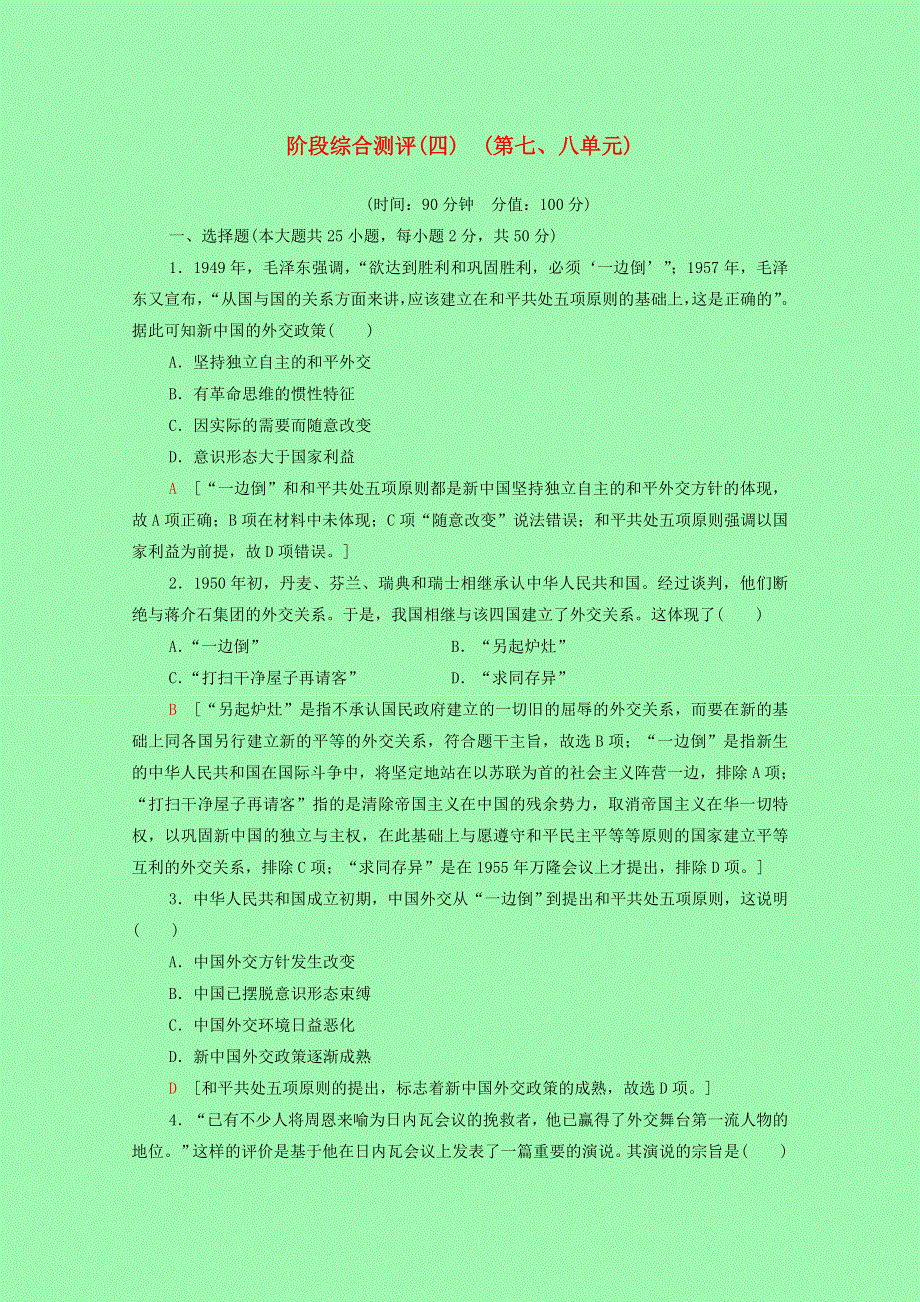 阶段综合测评(四)　(第七、八单元)
(时间：90分钟　分值：100分)
一、选择题(本大题共25小题，每小题2分，共50分)
1．1949年，毛泽东强调，“欲达到胜利和巩固胜利，必须‘一边倒’”；1957年，毛泽
东又宣布，“从国与国的关系方面来讲，应该建立在和平共处五项原则的基础上，这是正确的”。
据此可知新中国的外交政策(　　)
A．坚持独立自主的和平外交
B．有革命思维的惯性特征
C．因实际的需要而随意改变
D．意识形态大于国家利益
A　[“一边倒”和和平共处五项原则都是新中国坚持独立自主的和平外交方针的体现，
故A项正确；B项在材料中未体现；C项“随意改变”说法错误；和平共处五项原则强调以国
家利益为前提，故D项错误。]
2．1950年初，丹麦、芬兰、瑞典和瑞士相继承认中华人民共和国。经过谈判，他们断
绝与蒋介石集团的外交关系。于是，我国相继与该四国建立了外交关系。这体现了(　　)
A．“一边倒”　　　　　　　　B．“另起炉灶”
C．“打扫干净屋子再请客”　　D．“求同存异”
B　[“另起炉灶”是指不承认国民政府建立的一切旧的屈辱的外交关系，而要在新的基
础上同各国另行建立新的平等的外交关系，符合题干主旨，故选B项；“一边倒”是指新生
的中华人民共和国在国际斗争中，将坚定地站在以苏联为首的社会主义阵营一边，排除A项；
“打扫干净屋子再请客”指的是清除帝国主义在中国的残余势力，取消帝国主义在华一切特
权，以巩固新中国的独立与主权，在此基础上与愿遵守和平民主平等等原则的国家建立平等
互利的外交关系，排除C项；“求同存异”是在1955年万隆会议上才提出，排除D项。]
3．中华人民共和国成立初期，中国外交从“一边倒”到提出和平共处五项原则，这说明
(　　)
A．中国外交方针发生改变
B．中国已摆脱意识形态束缚
C．中国外交环境日益恶化
D．新中国外交政策逐渐成熟
D　[和平共处五项原则的提出，标志着新中国外交政策的成熟，故选D项。]
4．“已有不少人将周恩来喻为日内瓦会议的挽救者，他已赢得了外交舞台第一流人物的
地位。”这样的评价是基于他在日内瓦会议上发表了一篇重要的演说。其演说的宗旨是(　　)